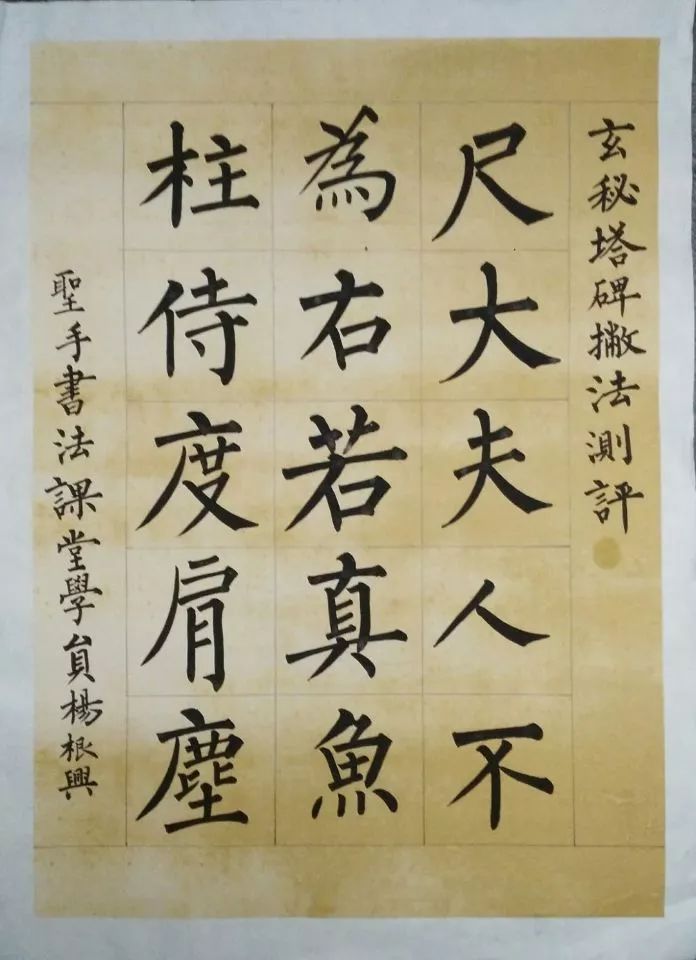 玄秘塔碑撇法測評
尺大夫人不
為右若真魚
柱侍度肩塵
聖手書法課堂學員楊根興